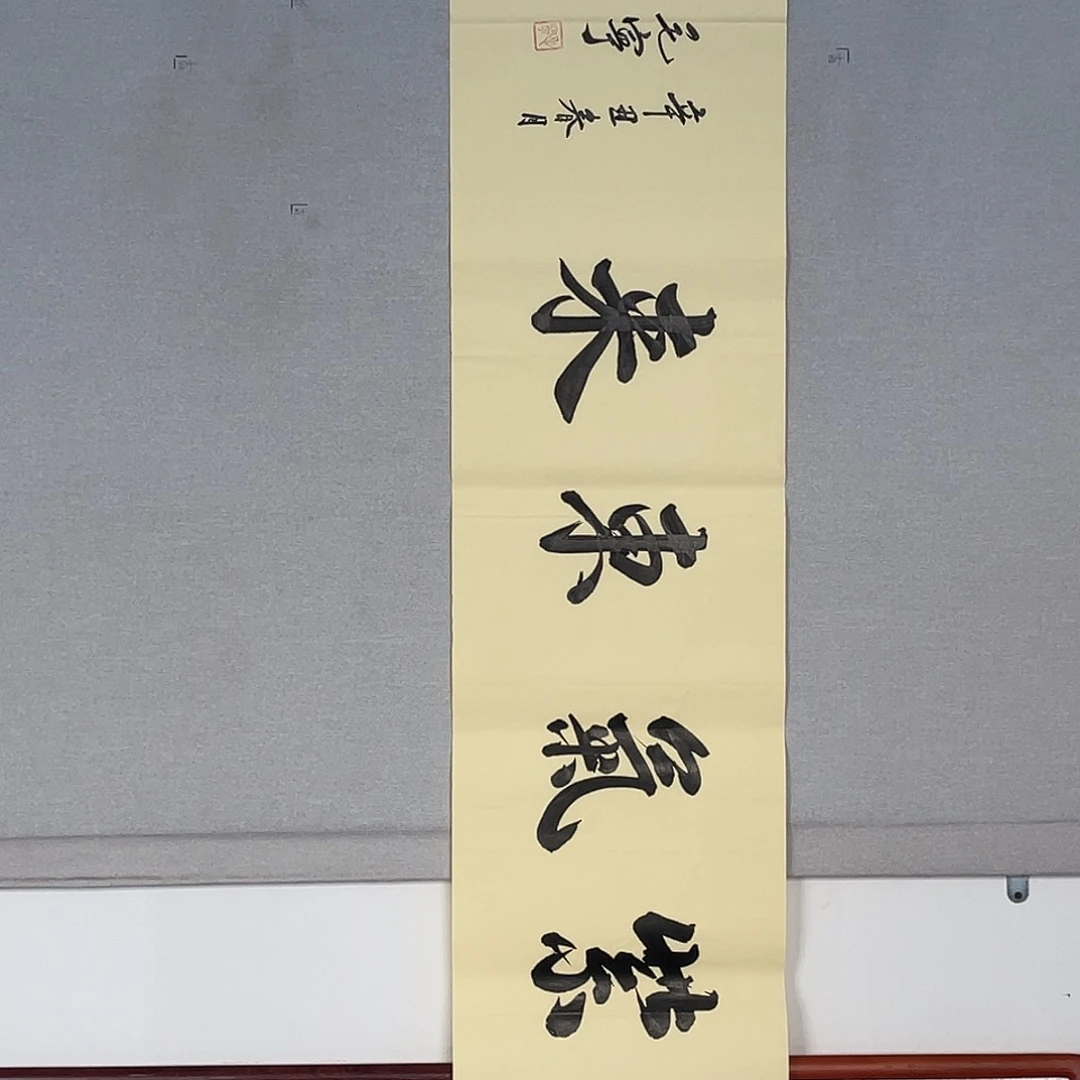 紫氣東來
辛丑春月